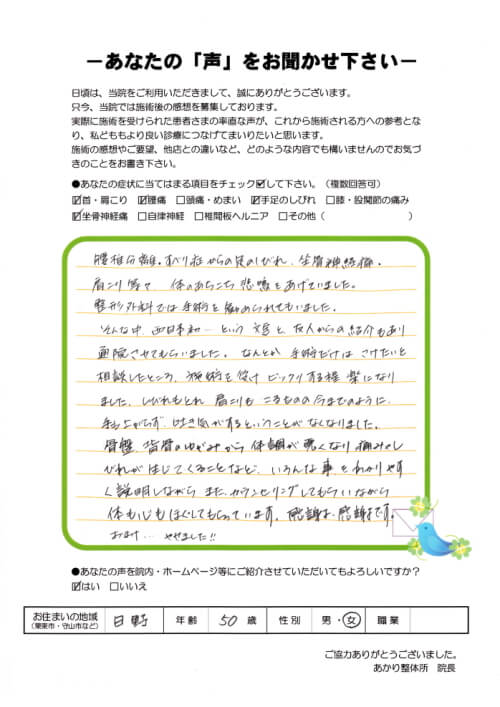 －あなたの「声」をお聞かせ下さい－
日頃は、当院をご利用いただきまして、誠にありがとうございます。
只今、当院では施術後の感想を募集しております。
実際に施術を受けられた患者さまの率直な声が、これから施術される方への参考とな
り、私どももより良い診療につなげてまいりたいと思います。
施術の感想やご要望、他店との違いなど、どのような内容でも構いませんのでお気づ
きのことをお書き下さい。
●あなたの症状に当てはまる項目をチェック☑して下さい。（複数回答可）
☑首・肩こり ☑腰痛 □頭痛・めまい ☑手足のしびれ □膝・股関節の痛み
☑坐骨神経痛 □自律神経 □椎間板ヘルニア □その他（ ）
腰椎分離。すべり症からの足のしびれ、坐骨神経痛。
肩こり等々、体のあちこち悲鳴をあげていました。
整形外科では手術を勧められてもいました。
そんな中、西日本初…という文言と、友人からの紹介もあり
通院させてもらいました。なんとか手術だけはさけたいと
相談したところ、施術を受け ビックリする程 楽になり
ました。しびれもとれ 肩こりも こるものの今までのように、
手も上がらず、吐き気がするということがなくなりました。
骨盤、背骨のゆがみから 体調が悪くなり 痛みやし
びれが生じてくることなど、いろんな事をわかりやす
く説明しながら また、カウンセリングしてもらいながら
体も心もほぐしてもらっています。感謝、感謝です。
おまけ…やせました!!
●あなたの声を院内・ホームページ等にご紹介させていただいてもよろしいですか？
☑はい □いいえ
お住まいの地域 （栗東市・守山市など） 日野 年齢 50 歳 性別 男・女 職業
ご協力ありがとうございました。
あかり整体所 院長